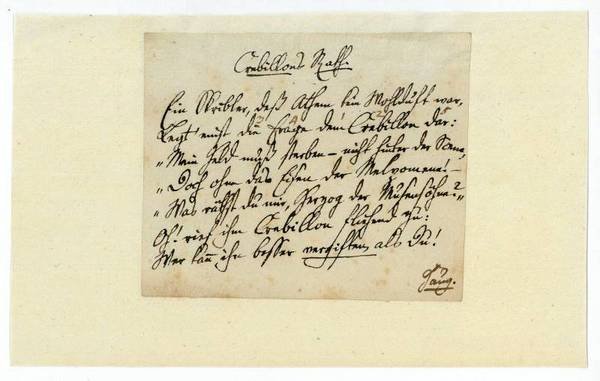 Crebillons Rath.
Ein Skribler, deß Athem kein Wohlduft war,
Legt' einst die Frage dem Crebillon dar:
„Mein Held muß sterben – nicht hinter der Scene,
„Doch ohne das Eisen der Melpomene! –
„Was räthst du mir, Herzog der Musensöhne?“
Oh! rief ihm Crebillon fliehend zu:
Wer kann ihn besser vergiften als Du!
Haug.